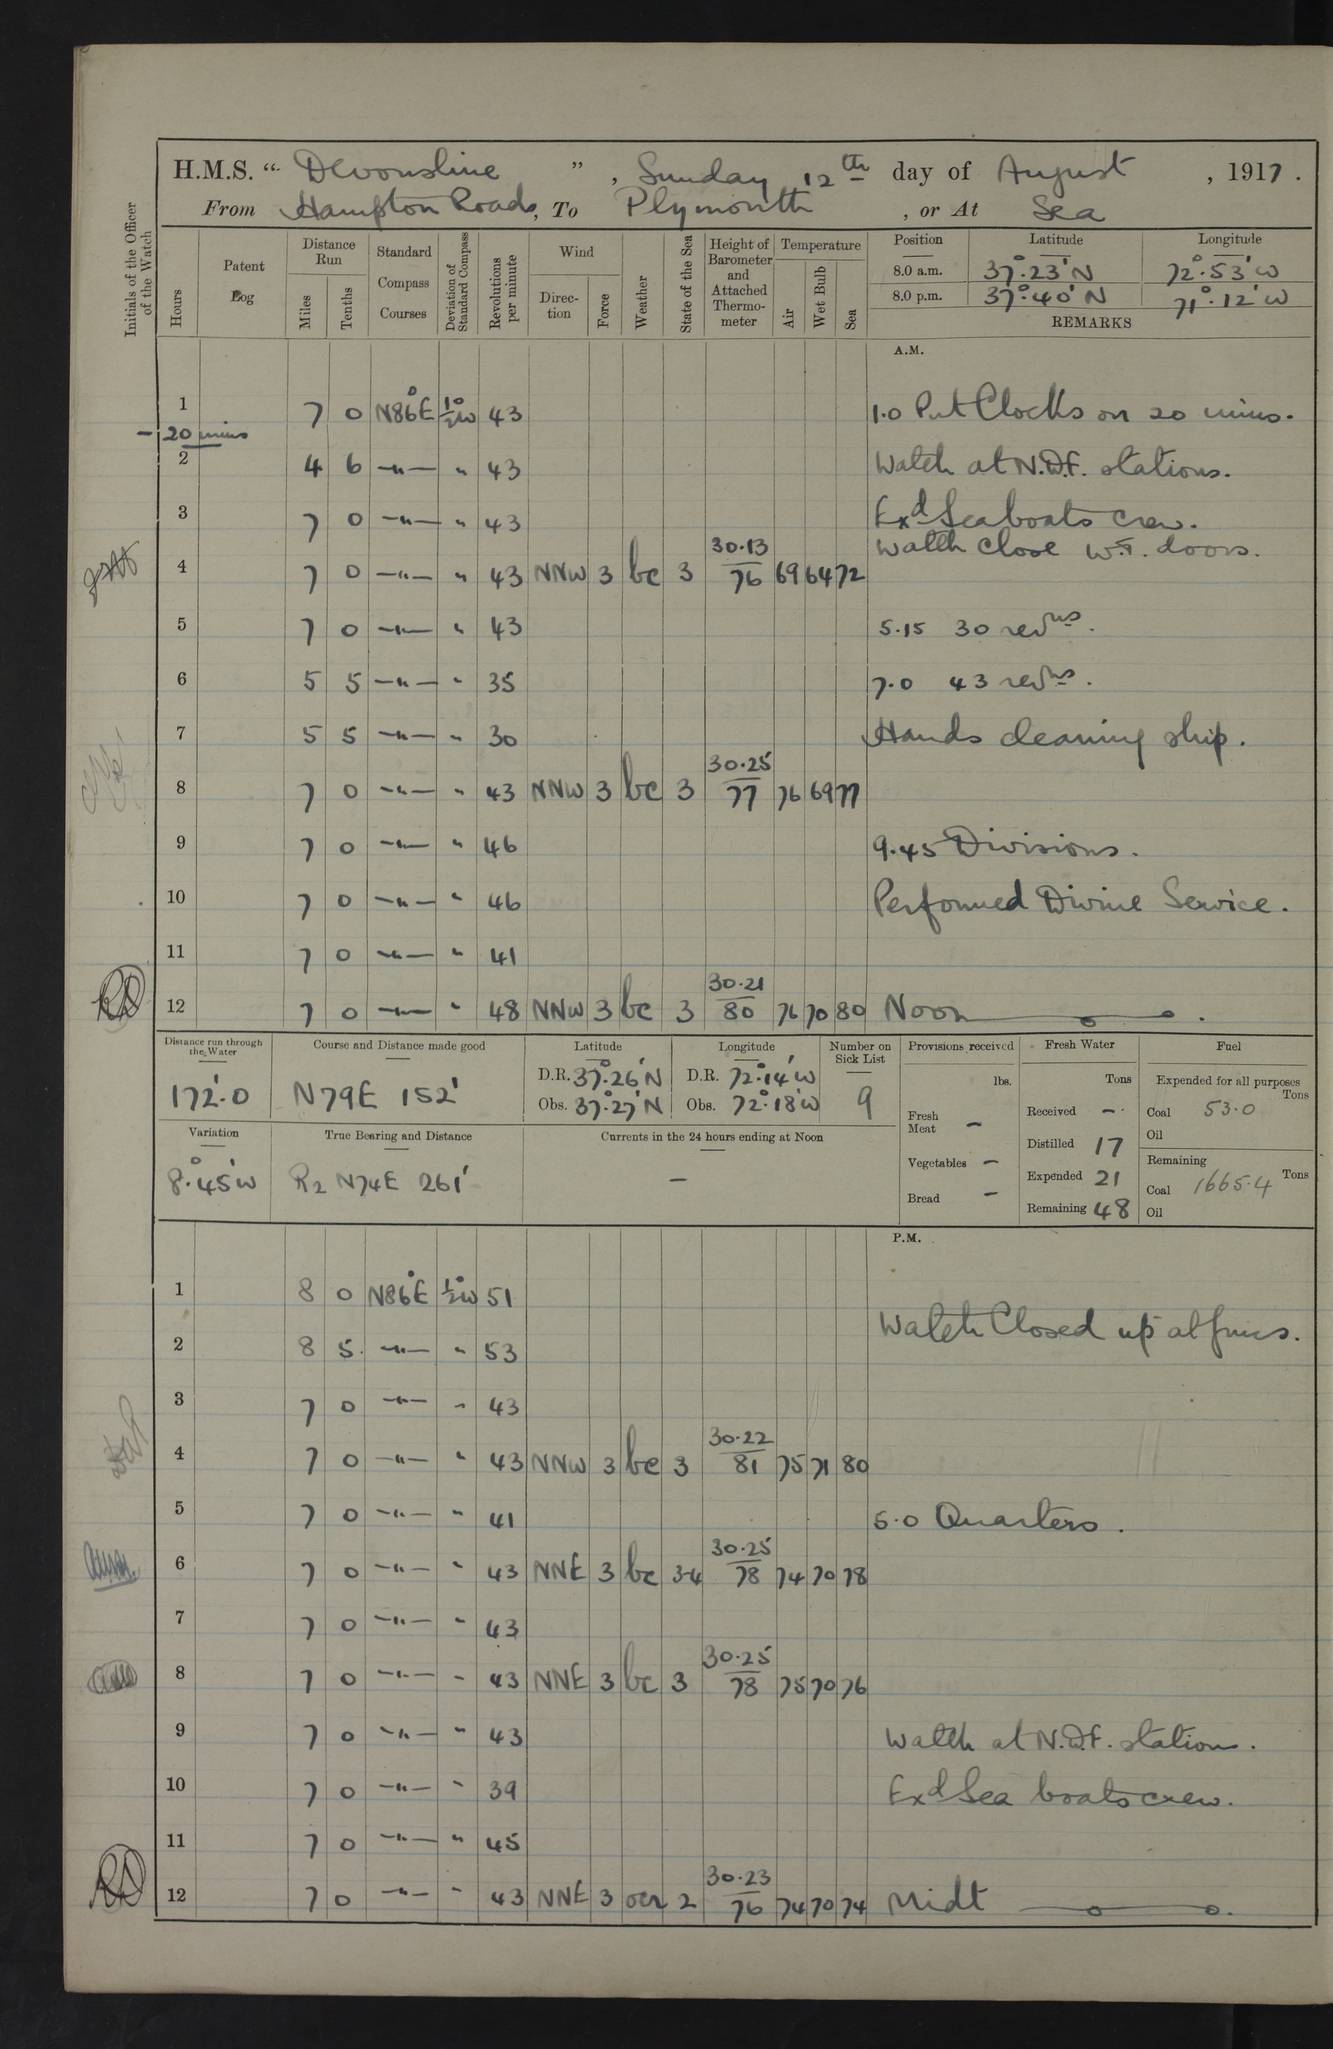 H.M.S. “ Devonshire ” , Sunday 12th day of August , 1917 .
From Hampton Roads, To Plymouth , or At Sea
Initials of the Officer of the Watch
Hours
Patent Log
Distance Run
Miles
Tenths
Standard Compass Courses
Deviation of Standard Compass
Revolutions per minute
Wind
Direction
Force
Weather
State of the Sea
Height of Barometer and Attached Thermometer
Temperature
Air
Wet Bulb
Sea
Position Latitude Longitude
8.0 a.m. 37°.23' N 72°.53' W
8.0 p.m. 37°.40' N 71°.12' W
REMARKS
A.M.
1 7 0 N86°E ½°W 43 1.0 Put Clocks on 20 mins.
- 20 mins
2 4 6 —"— " 43 Watch at N.D.F. stations.
3 7 0 —"— " 43 Exd Seaboats crew.
Watch close W.T. doors.
4 7 0 —"— " 43 NNW 3 bc 3 30.13 76 69 64 72
5 7 0 —"— " 43 5.15 30 revns.
6 5 5 —"— " 35 7.0 43 revns.
7 5 5 —"— " 30 Hands cleaning ship.
8 7 0 —"— " 43 NNW 3 bc 3 30.25 77 76 69 77
9 7 0 —"— " 46 9.45 Divisions.
10 7 0 —"— " 46 Performed Divine Service.
11 7 0 —"— " 41
12 7 0 —"— " 48 NNW 3 bc 3 30.21 80 76 70 80 Noon
Distance run through the Water 172'.0
Course and Distance made good N79E 152'
Latitude D.R. 37°.26' N Obs. 37°.27' N
Longitude D.R. 72°.14' W Obs. 72°.18' W
Number on Sick List 9
Provisions received lbs.
Fresh Meat —
Vegetables —
Bread —
Fresh Water Tons
Received —
Distilled 17
Expended 21
Remaining 48
Fuel
Expended for all purposes Tons
Coal 53.0
Oil
Remaining
Coal 1665.4 Tons
Oil
Variation 8°.45' W
True Bearing and Distance R2 N74E 261'
Currents in the 24 hours ending at Noon —
P.M.
1 8 0 N86°E ½°W 51
Watch Closed up at guns.
2 8 5 —"— " 53
3 7 0 —"— " 43
4 7 0 —"— " 43 NNW 3 bc 3 30.22 81 75 71 80
5 7 0 —"— " 41 5.0 Quarters.
6 7 0 —"— " 43 NNE 3 bc 3-4 30.25 78 74 70 78
7 7 0 —"— " 43
8 7 0 —"— " 43 NNE 3 bc 3 30.25 78 75 70 76
9 7 0 —"— " 43 Watch at N.D.F. stations.
10 7 0 —"— " 39 Exd Sea boats crew.
11 7 0 —"— " 45
12 7 0 —"— " 43 NNE 3 ocr 2 30.23 76 74 70 74 Midt